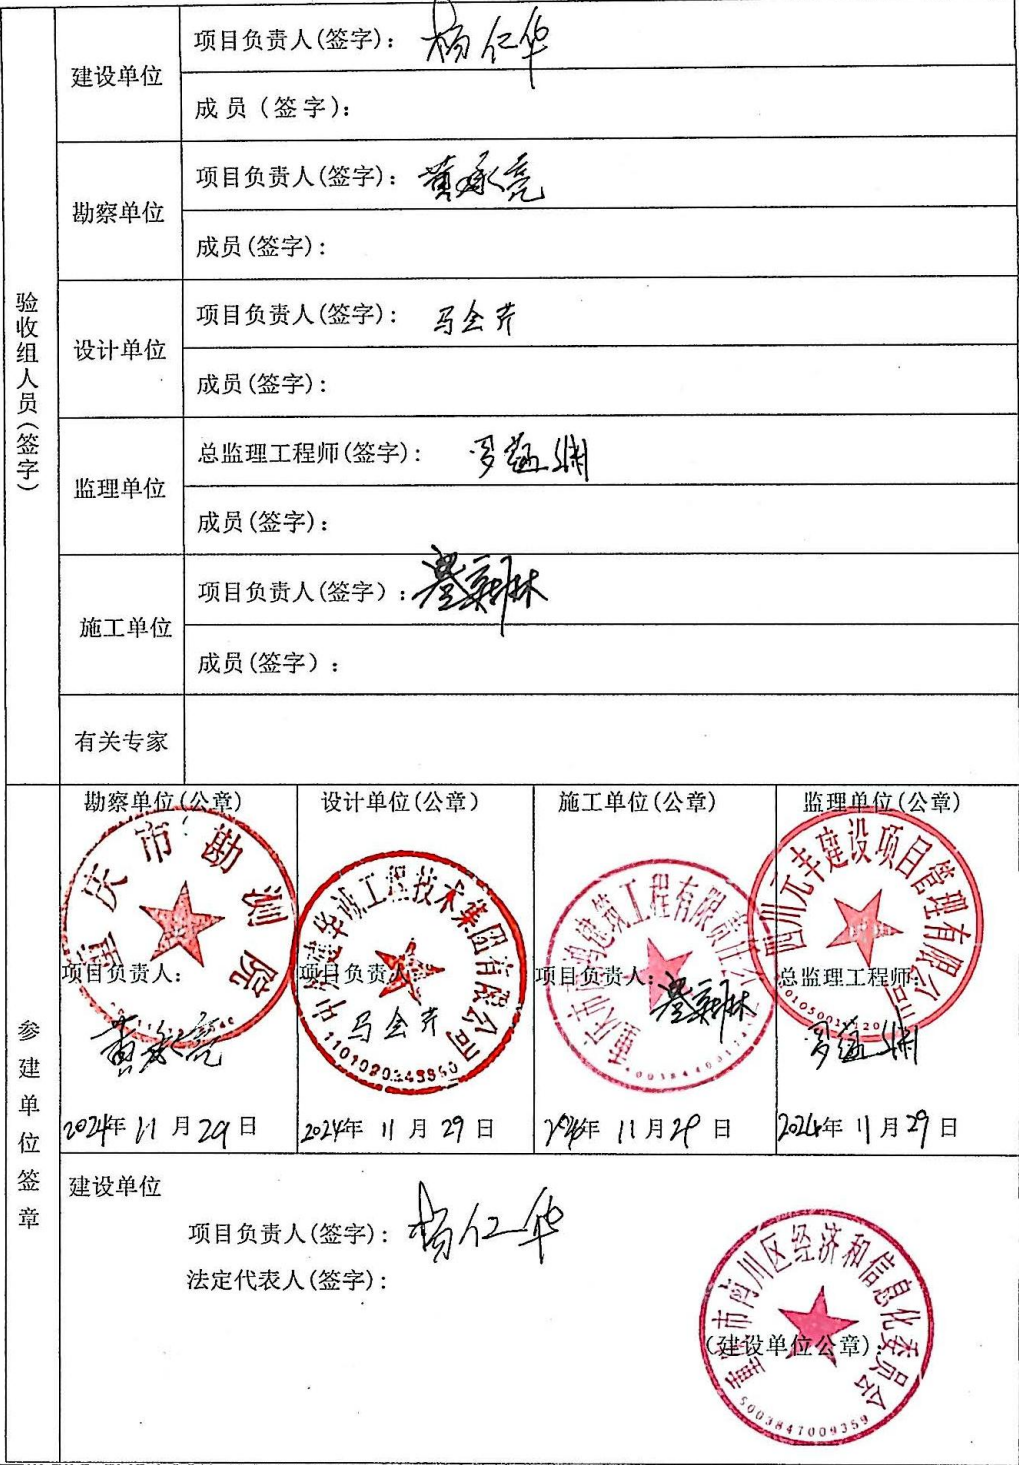 验收组人员(签字)
建设单位
项目负责人(签字): 杨仁华
成员(签字):
勘察单位
项目负责人(签字): 黄承亮
成员(签字):
设计单位
项目负责人(签字): 马会芹
成员(签字):
监理单位
总监理工程师(签字): 罗
成员(签字):
施工单位
项目负责人(签字):
成员(签字):
有关专家
参建单位签章
勘察单位(公章)
重庆市勘测院
项目负责人:
黄承亮
2024年 11月29日
设计单位(公章)
中 建华诚工程技术集团有限公司
项目负责人:
马会芹
2024年 11月29日
施工单位(公章)
重庆市 建筑工程有限责任公
项目负责人:
2024年 11月29日
监理单位(公章)
四川元丰建设项目管理有限公司
总监理工程师:
罗
2024年 11月29日
建设单位
项目负责人(签字): 杨仁华
法定代表人(签字):
重庆市南川区经济和信息化委员会
(建设单位公章):
5003847009359